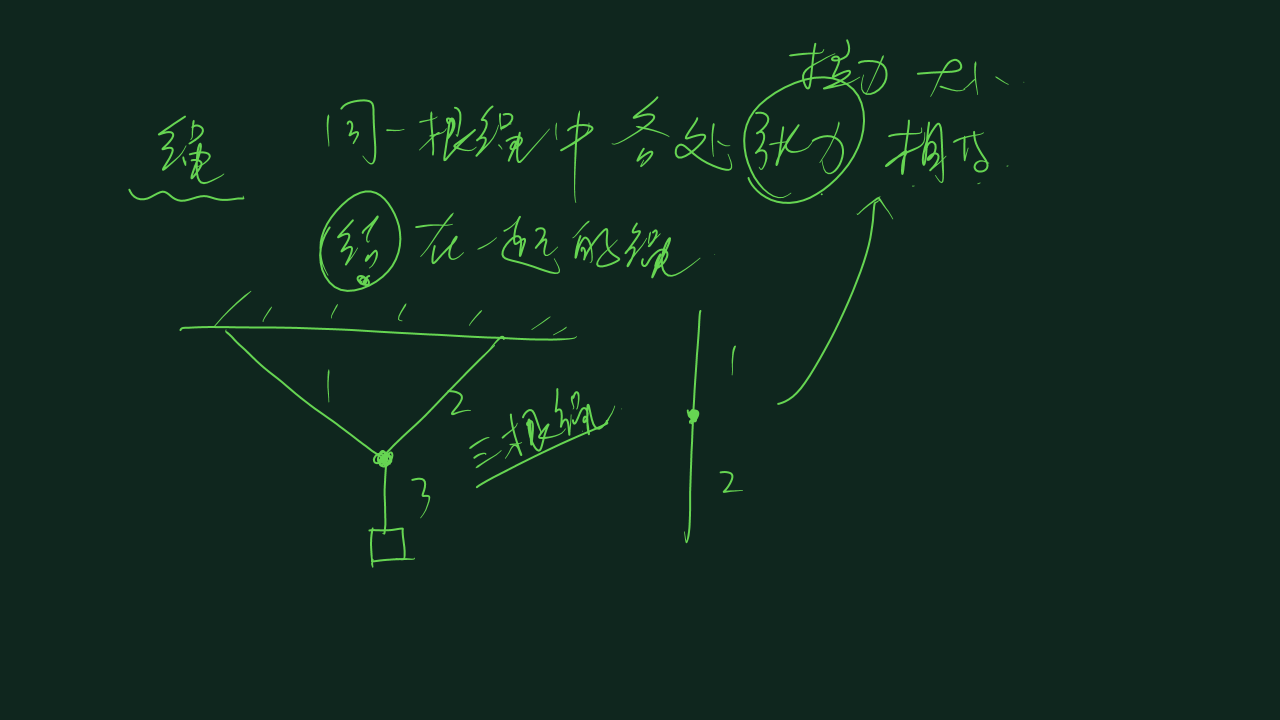 拉力 大小
绳 同一根绳中 各处张力 相等.
结在一起的绳
1
2
三根绳
3
1
2